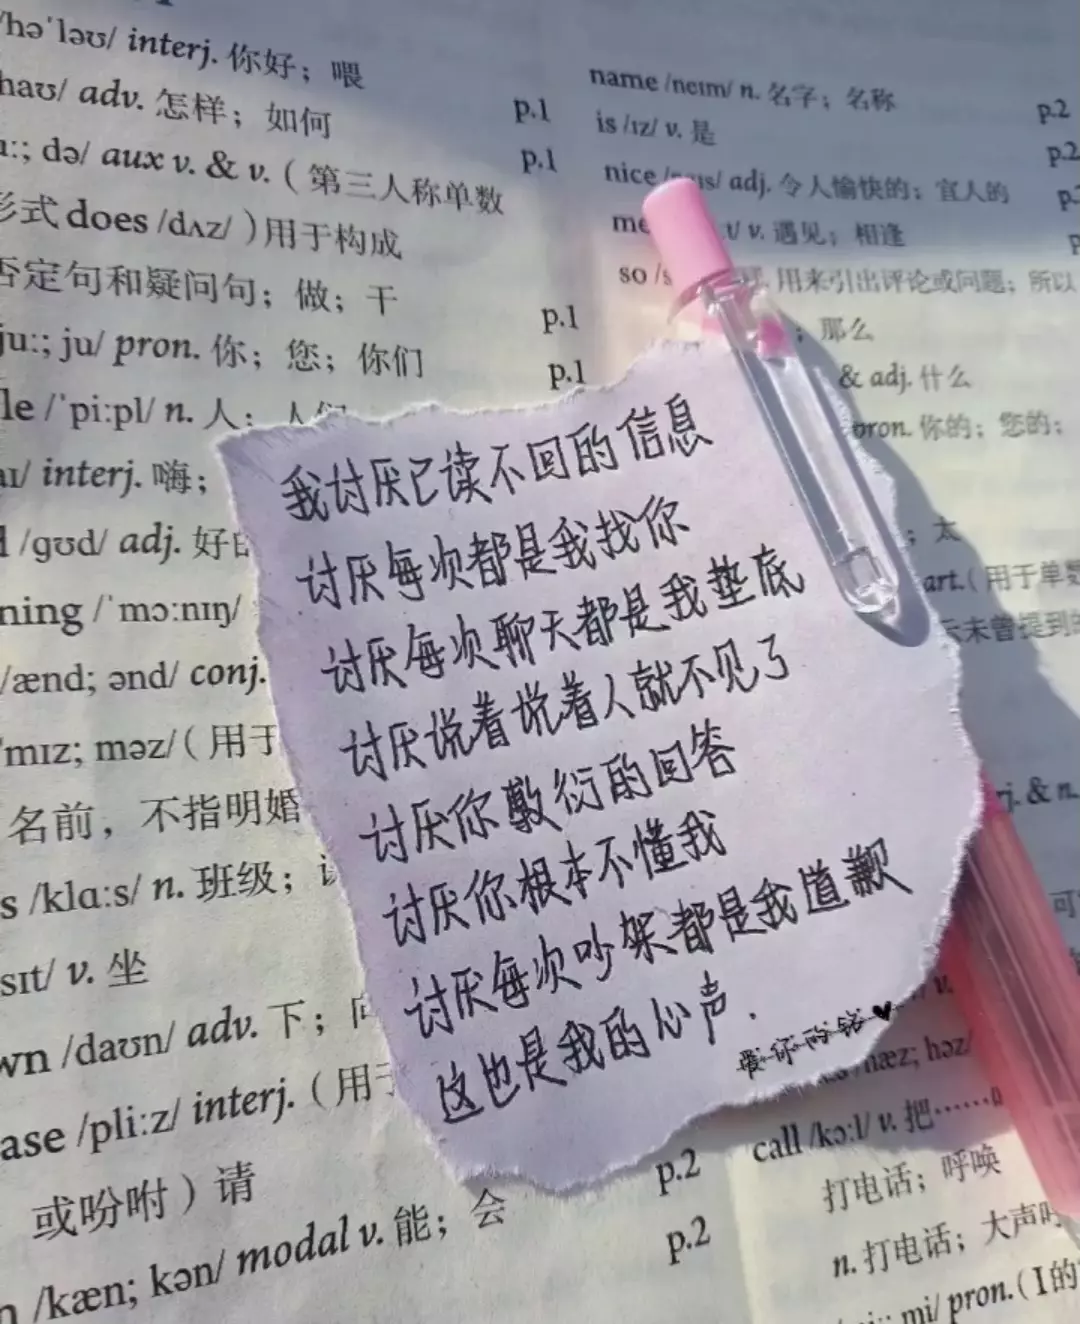 /həˈləʊ/ interj. 你好；喂
haʊ/ adv. 怎样；如何
p.1
uː; də/ aux v. & v.（第三人称单数
p.1
形式 does /dʌz/ )用于构成
否定句和疑问句；做；干
p.1
juː; ju/ pron. 你；您；你们
p.1
le /ˈpiːpl/ n. 人；人们
aɪ/ interj. 嗨；
/ɡʊd/ adj. 好
ning /ˈmɔːnɪŋ/
/ænd; ənd/ conj.
ˈmɪz; məz/（用于
名前，不指明婚
s /klɑːs/ n. 班级；
sɪt/ v. 坐
wn /daʊn/ adv. 下；向
ase /pliːz/ interj.（用于
或吩咐）请
p.2
n /kæn; kən/ modal v. 能；会
p.2
name /neɪm/ n. 名字；名称
p.2
is /ɪz/ v. 是
p.2
nice /naɪs/ adj. 令人愉快的；宜人的
me t/ v. 遇见；相逢
so /s 用来引出评论或问题；所以
；那么
& adj. 什么
pron. 你的；您的；
；太
art.（用于单数
未曾提到的
& n.
我讨厌已读不回的信息
讨厌每次都是我找你
讨厌每次聊天都是我垫底
讨厌说着说着人就不见了
讨厌你敷衍的回答
讨厌你根本不懂我
讨厌每次吵架都是我道歉
这也是我的心声.
hæz; həz/
call /kɔːl/ v. 把……叫
打电话；呼唤
n. 打电话；大声呼
mi/ pron.（I的